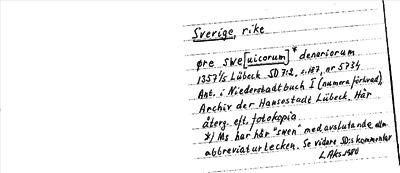 Sverige, rike
øre swe[uicorum]* denariorum
1357 1/5 Lübeck SD 7:2, s. 187, nr 5734
Ant. i Niederstadtbuch I (numera förlorad),
Archiv der Hansestadt Lübeck. Här
återg. eft. fotokopia
*) Ms. har här "swen" med avslutande allm.
abbreviaturtecken. Se vidare SD:s kommentar
LAks 1980